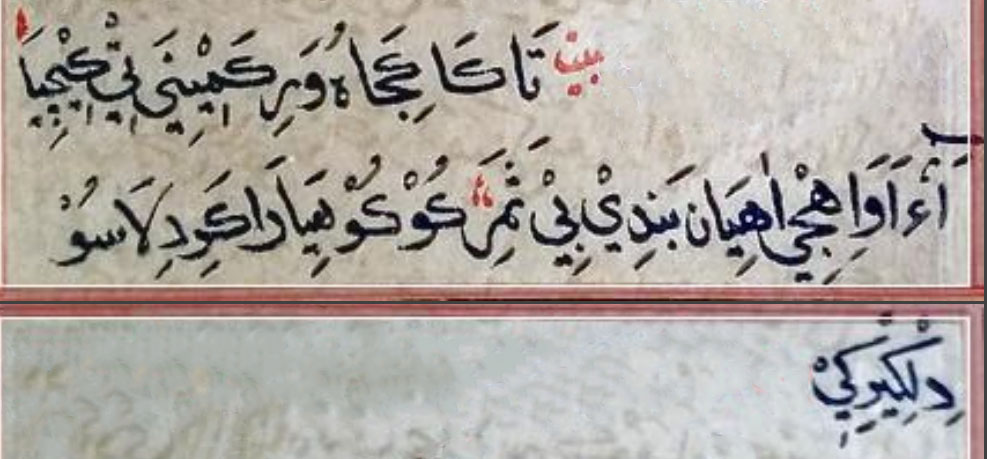 بيت تَا كَا كِجَاهُ وَرِ كَمِيْنِيَ تِيْ كِيْچِيَا
آءُ اَوَاهِجْيِ اٰهِيَان بَنِدِيْ بِيْ ثَمِرَ كُوْكُوْ هِيَارَا كَرِ دِلَاسُوْ
دِلِكِيْرِكِيْ